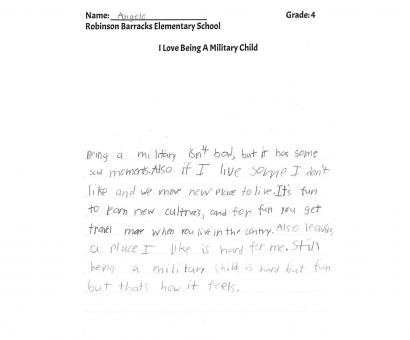 Name: Angelo Grade: 4
Robinson Barracks Elementary School
I Love Being A Military Child
Being a military isn4 bad, but it has some
sad moments. Also if I live some I don't
like and we move new place to live. It's fun
to learn new cultures, and for fun you get
travel more when you live in the contry. Also leaving
a place I like is hard for me. Still
being a military child is hard but fun
but thats how it feels.